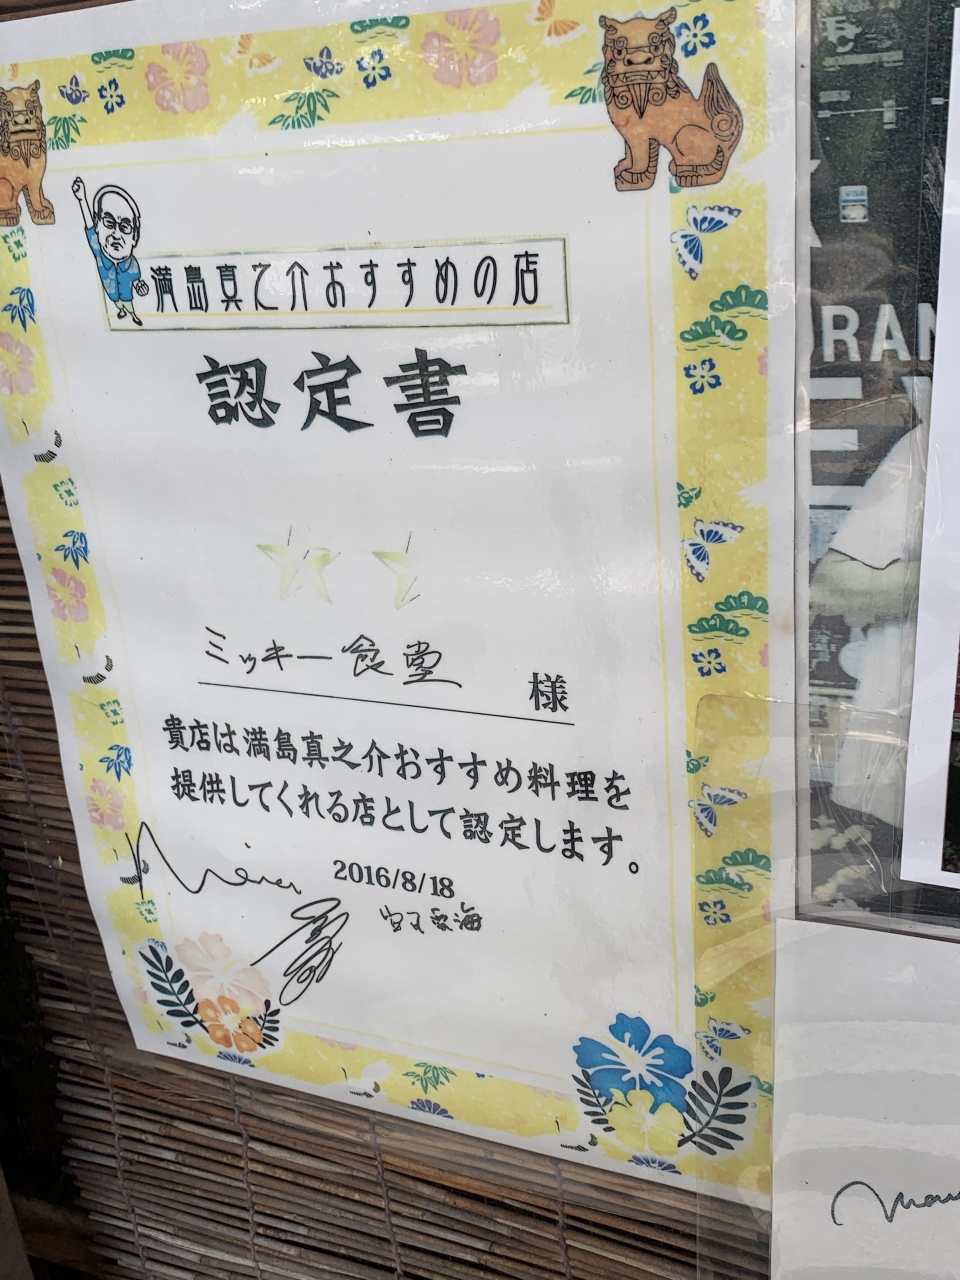 満島真之介おすすめの店
認定書
ミッキー食堂 様
貴店は満島真之介おすすめ料理を
提供してくれる店として認定します。
2016/8/18
RAN